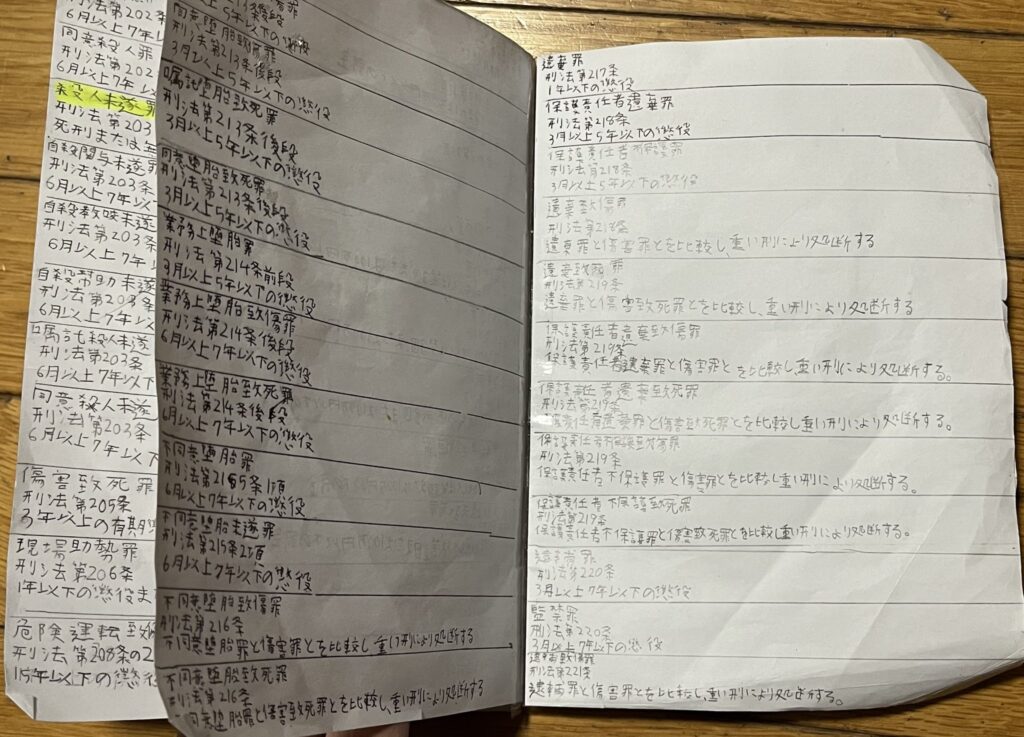 刑法第202
6月以上7年
同意殺人罪
刑法第202
6月以上7年
殺人未遂罪
刑法第203
死刑または
自殺関与未遂罪
刑法第203条
6月以上7年以
自殺教唆未遂
刑法第203条
6月以上7年以
自殺幇助未遂
刑法第203条
6月以上7年以
嘱託殺人未遂
刑法第203条
6月以上7年以下
同意殺人未遂
刑法第203条
6月以上7年以下
傷害致死罪
刑法第205条
3年以上の有期
現場助勢罪
刑法第206条
1年以下の懲役ま
危険運転致
刑法第208条の2
15年以下の懲役
上5年以下の懲役
同意堕胎致傷罪
刑法第213条後段
3月以上5年以下の懲役
嘱託堕胎致死罪
刑法第213条後段
3月以上5年以下の懲役
同意堕胎致死罪
刑法第213条後段
3月以上5年以下の懲役
業務上堕胎罪
刑法第214条前段
3月以上5年以下の懲役
業務上堕胎致傷罪
刑法第214条後段
6月以上7年以下の懲役
業務上堕胎致死罪
刑法第214条後段
6月以上7年以下の懲役
不同意堕胎罪
刑法第215条1項
6月以上7年以下の懲役
不同意堕胎未遂罪
刑法第215条2項
6月以上7年以下の懲役
不同意堕胎致傷罪
刑法第216条
不同意堕胎罪と傷害罪とを比較し、重い刑により処断する
不同意堕胎致死罪
刑法第216条
同意堕胎罪と傷害致死罪とを比較し、重い刑により処断する
遺棄罪
刑法第217条
1年以下の懲役
保護責任者遺棄罪
刑法第218条
3月以上5年以下の懲役
保護責任者不保護罪
刑法第218条
3月以上5年以下の懲役
遺棄致傷罪
刑法第218条
遺棄罪と傷害罪とを比較し、重い刑により処断する
遺棄致死罪
刑法第219条
遺棄罪と傷害致死罪とを比較し、重い刑により処断する
保護責任者遺棄致傷罪
刑法第219条
保護責任者遺棄罪と傷害罪とを比較し、重い刑により処断する。
保護責任者遺棄致死罪
刑法第219条
保護責任者遺棄罪と傷害致死罪とを比較し、重い刑により処断する。
保護責任者不保護致傷罪
刑法第219条
保護責任者不保護罪と傷害罪とを比較し、重い刑により処断する。
保護責任者不保護致死罪
刑法第219条
保護責任者不保護罪と傷害致死罪とを比較し、重い刑により処断する。
逮捕罪
刑法第220条
3月以上7年以下の懲役
監禁罪
刑法第220条
3月以上7年以下の懲役
逮捕致傷罪
刑法第221条
逮捕罪と傷害罪とを比較し、重い刑により処断する。